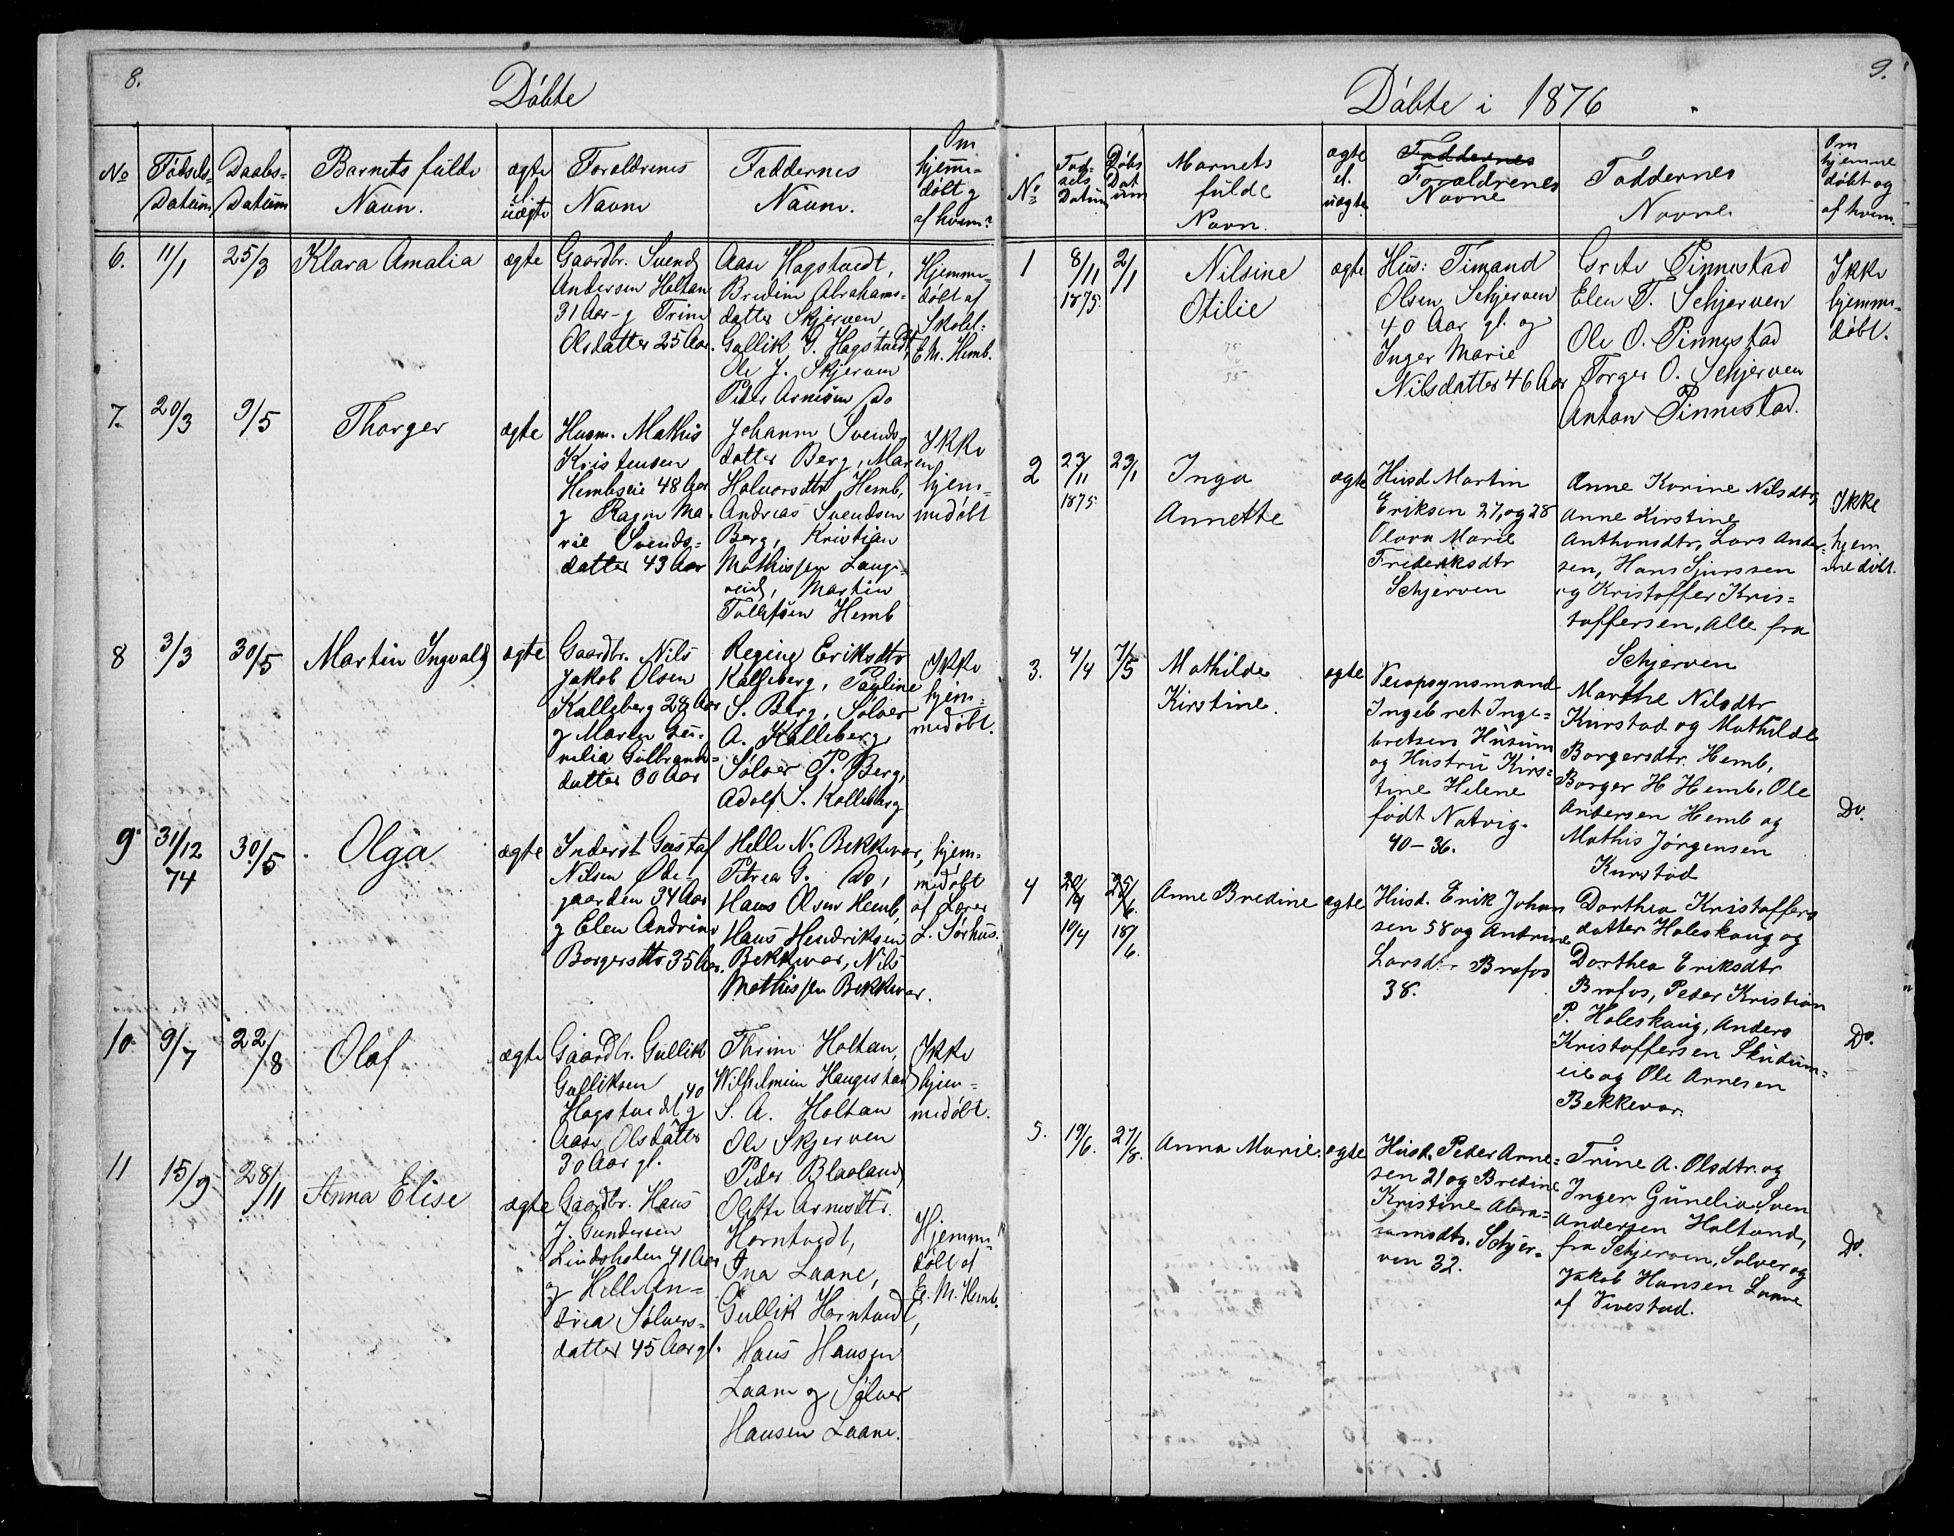 8.
Døbte
No
Fødsels-
Datum
Daabs-
Datum
Barnets fulde
Navn.
ægte
el.
uægte
Forældrenes
Navne
Faddernes
Navne.
Om
hjemme-
døbt og
af hvem?
6.
11/1
25/3
Klara Amalia
ægte
Gaardbr. Svend
Andersen Holtan
31 Aar - g Trine
Olsdatter 25 Aar.
Aase Hagstvedt,
Bredine Abrahams-
datter Skjerven,
Gullik G. Hagstvedt,
Ole J. Skjerven
Peder Arnesen Do
Hjemme-
døbt af
Skolel.
E. M. Hemb.
7.
20/3
9/5
Thorger
ægte
Husm. Mathis
Kristensen
Hembseie 48 Aar
g Ragn Ma-
rie Svends-
datter 43 Aar
Johanne Svends-
datter Berg, Maren
Halvorsdtr Hemb,
Andreas Svendsen
Berg, Kristian
Mathissen
Martin
Tollefsen Hemb
Ikke
hjem-
medøbt
8
3/3
30/5
Martin Ingvald
ægte
Gaardbr. Nils
Jakob Olsen
Kalleberg 28 Aar
g Maren Gu-
nelia Gulbrands-
datter 30 Aar
Regine Eriksdtr
Kalleberg, Pauline
S. Berg, Sølver
A. Kalleberg
Sølver P. Berg,
Adolf S. Kalleberg
Ikke
hjem-
medøbt.
9.
31/12
74
30/5
Olga
ægte
Inderst Gustaf
Nilsen Øde-
gaarden 34 Aar
g Elen Andrine
Borgersdtr 35 Aar.
Helle N. Bekkevar,
Petrea G. Do,
Hans Olsen Hemb,
Hans Hendriksen
Bekkevar, Nils
Mathissen Bekkevar.
hjem-
medøbt
af Lærer
L. Sørhus.
10.
9/7
22/8
Olaf
ægte
Gaardbr. Gullik
Gulliksen 40
Hagstvedt g
Aase Olsdatter
30 Aar gl.
Thrine Holtan,
Wilhelmine Haugestad
S. A. Holtan
Ole Skjerven
Peder Blaaland
Ikke
hjem-
medøbt.
11
15/9
28/11
Anna Elise
ægte
Gaardbr. Hans
J. Gundersen
Lindsholen 41 Aar
g Helle An-
drea Sølvers-
datter 45 Aar gl.
Olette Arnesdtr.
Horntvedt,
Ina Laane,
Gullik Horntvedt,
Hans Hansen
Laane g Sølver
Hansen Laane.
Hjemme-
døbt af
E. M. Hemb.
9.
Døbte i 1876
No
Fød-
sels
Datum
Døbs
Dat
um
Barnets
fulde
Navn.
ægte
el.
uægte
Faddernes
Forældrenes
Navne
Faddernes
Navne
Om
hjemme
døbt og
af hvem
1
8/11
1875.
2/1
Nilsine
Otilie
ægte
Hus: Timand
Olsen Schjerven
40 Aar gl. og
Inger Marie
Nilsdatter 46 Aar
Grete Pinnestad
Elen T. Schjerven
Ole O. Pinnestad
Torger O. Schjerven
Anton Pinnestad.
Ikke
hjemme-
døbt.
2
27/11
1875
23/1
Inga
Annette
ægte
Husd Martin
Eriksen 27, og 28
Olava Marie
Frideriksdtr
Schjerven
Anne Karine Nilsdtr,
Anne Kirstine
Anthonsdtr, Lars Ander-
sen, Hans Sjurssen
og Kristoffer Kris-
toffersen, Alle fra
Schjerven
Ikke
hjem
medøbt.
3.
4/4
7/5
Mathilde
Kirstine.
ægte
Veiopsynsmand
Ingebret Inge-
bretsen Husum
og Hustru Kirs-
tine Helene
født Natvig.
40-36.
Marthe Nilsdtr
Kurstad og Mathilde
Borgersdtr. Hemb,
Borger H Hemb, Ole
Andersen Hemb og
Mathis Jørgensen
Kurstad
Do.
4
20/4
10/4
25/6.
18/6.
Anne Bredine
ægte
Husd. Erik Johan
sen 58 og Antrine
Larsd. Brofos
38.
Dorthea Kristoffers
datter Holeskaug og
Dorthea Eriksdtr
Brofos, Peder Kristian
P. Holeskaug, Anders
Kristoffersen Skudum-
eie og Ole Arnesen
Bekkevar.
Do.
5.
19/6.
27/8.
Anna Marie.
ægte
Husd. Peder Arne-
sen 21 og Bredine
Kristine Abra-
hamsdtr. Schjer-
ven 32.
Trine A. Olsdtr. og
Inger Gunelia, Sven
Andersen Holtand,
fra Schjerven, Sølver og
Jakob Hansen Laane
af Vivestad.
Do.